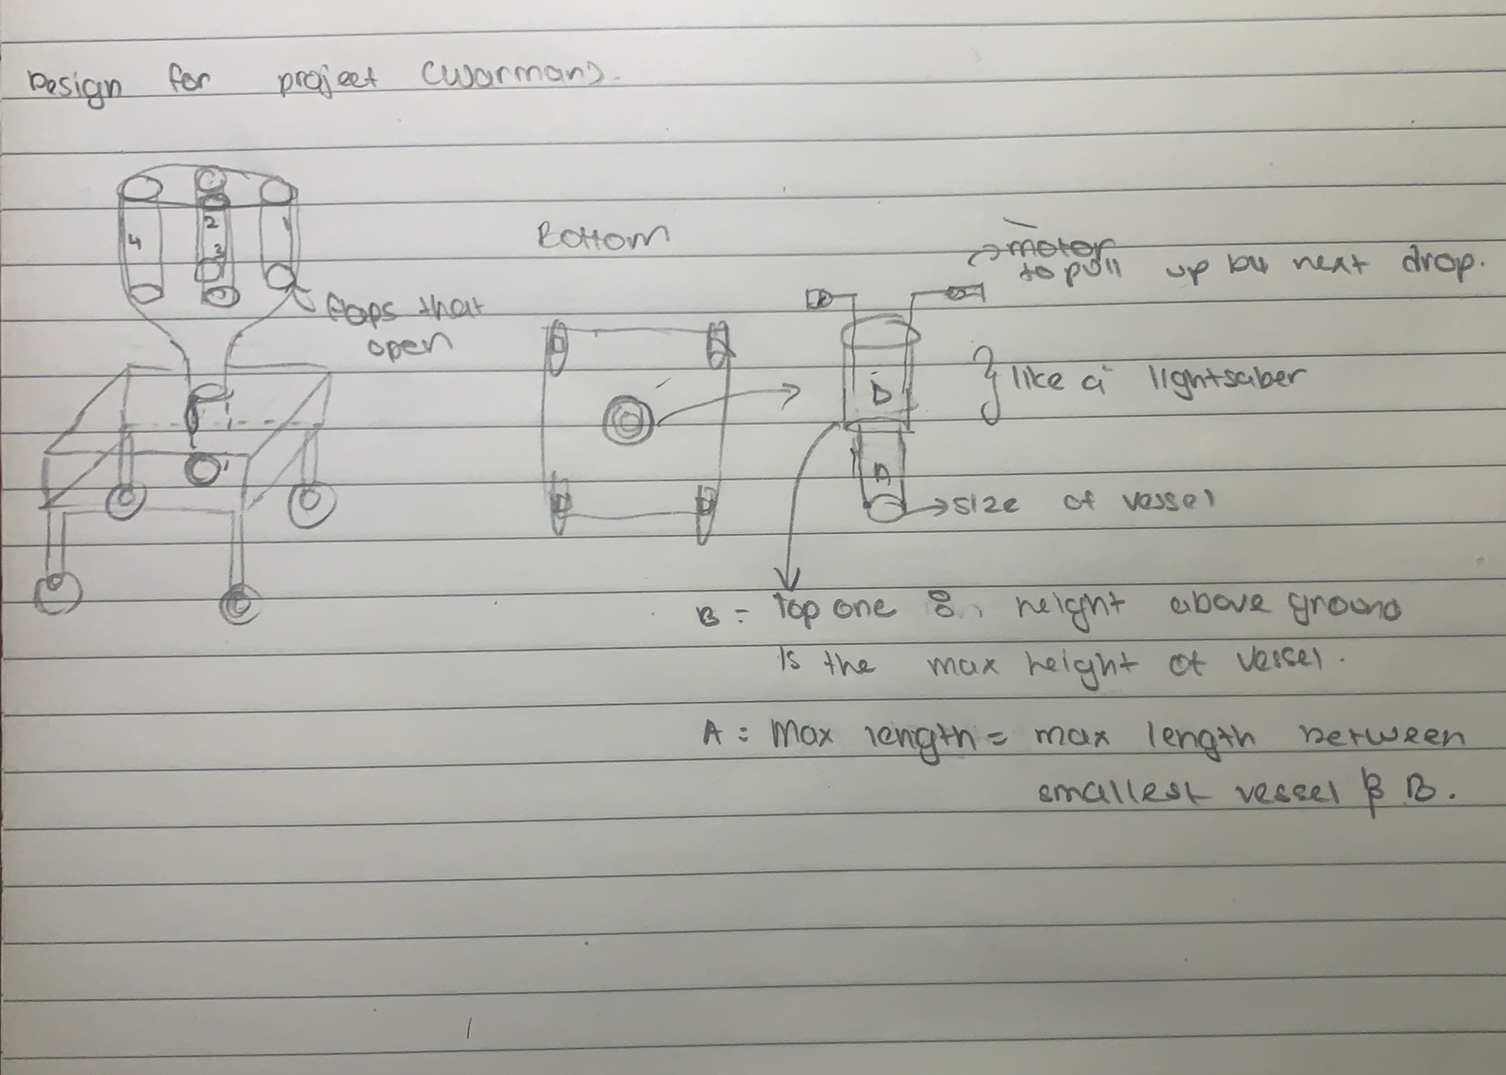 Design for project (Warman).
4
2
3
1
flaps that
open
Bottom
motor
to pull up by next drop.
like a lightsaber
B
A
size of vessel
B = Top one &, height above ground
is the max height of vessel.
A = Max length = max length between
smallest vessel & B.